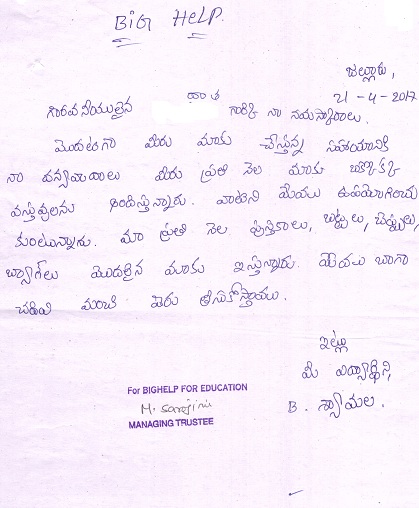 BIG HELP.
జల్లూరు,
21-4-2017
గౌరవనీయులైన దాత గారికి నా నమస్కారాలు.
మొదటగా మీరు మాకు చేస్తున్న సహాయానికి
నా ధన్యవాదాలు మీరు ప్రతి నెల మాకు ఒక్కొక్క
వస్తువులను అందిస్తున్నారు. వాటిని మేము ఉపయోగించు
కుంటున్నాము. మా ప్రతి నెల పుస్తకాలు, బట్టలు, చెప్పులు,
బ్యాగ్‌లు మొదలైన మాకు ఇస్తున్నారు. మేము బాగా
చదివి మంచి పేరు తీసుకోస్తాము.
ఇట్లు
మీ విద్యార్థిని,
B. శ్యామల.
For BIGHELP FOR EDUCATION
M. Sarojini
MANAGING TRUSTEE